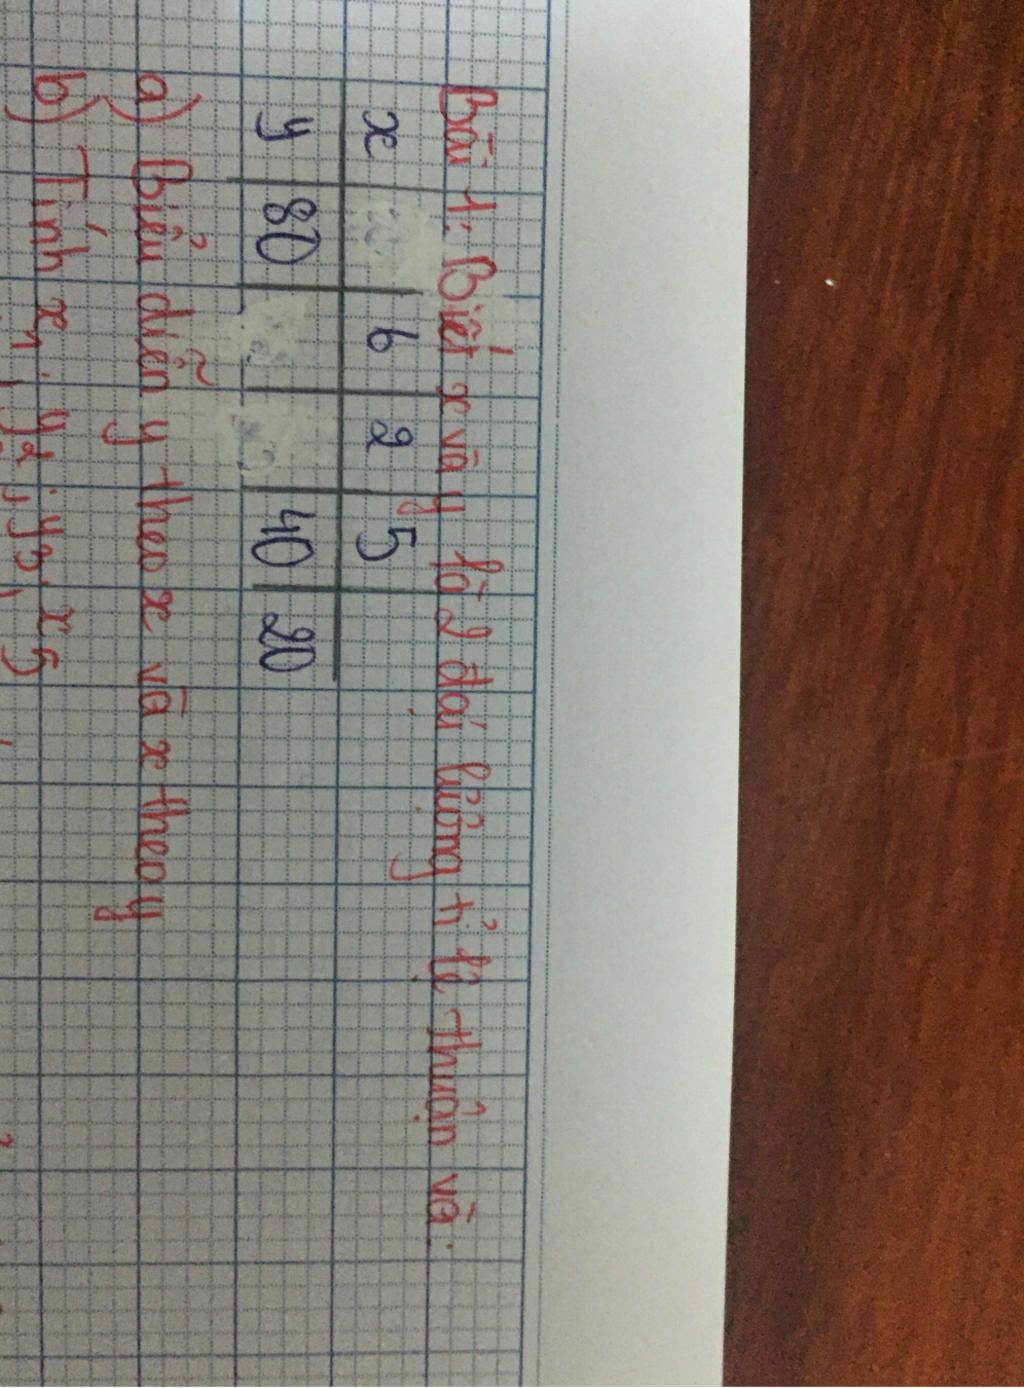 Bài 1: Biết x và y là 2 đại lượng tỉ lệ thuận và:
x 6 2 5
y 80 40 20
a) Biểu diễn y theo x và x theo y
b) Tính x1; y2; y3; x5